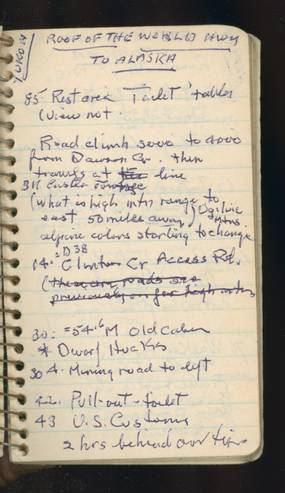 YUKON
ROOF OF THE WORLD HWY
TO ALASKA
85 Rest area Toilet tables
(View not
Road climb 3000 to 4000
from Dawson Cr. then
travels at tree line
(what is high mtn range to
east 50 miles away) Ogilvie Mtns.
alpine colors starting to change
D38
Clinton Cr Access Rd.
previously on for high
30: = 54.6 M Old Cabin
* Dwarf Hucks
30 4. Mining road to left
Pull-out-toilet
43 U.S. Customs
2 hrs behind our time